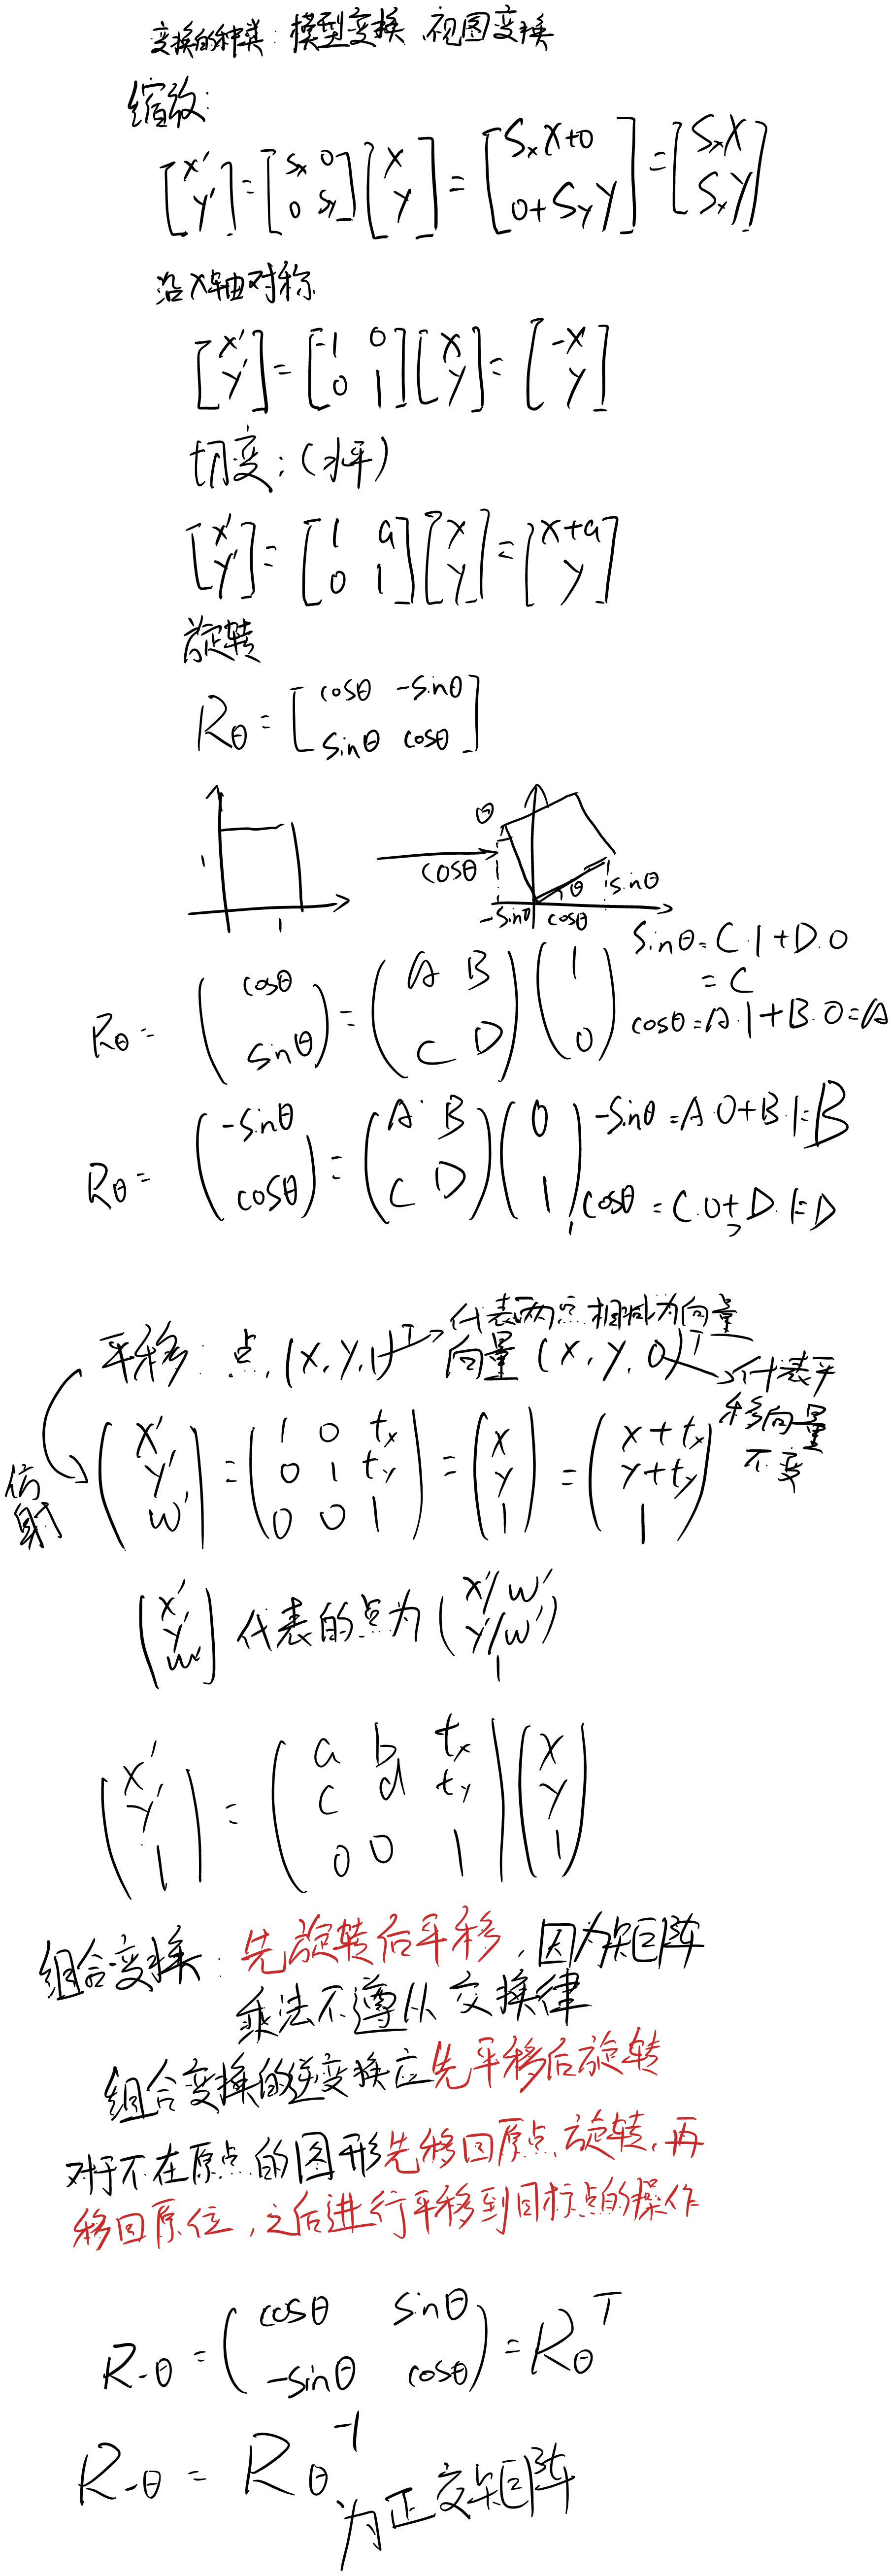 变换的种类：模型变换、视图变换
缩放：
[x' y'] = [Sx 0; 0 Sy] [x y] = [Sx x+0; 0+Sy y] = [Sx x; Sx y]
沿x轴对称
[x' y'] = [-1 0; 0 1] [x y] = [-x y]
切变：(水平)
[x' y'] = [1 a; 0 1] [x y] = [x+a y]
旋转
Rθ = [cosθ -sinθ; sinθ cosθ]
1
1
cosθ
θ
θ
sinθ
-sinθ
cosθ
Rθ = (cosθ; sinθ) = (A B; C D) (1; 0)
sinθ = C·1+D·0
= C
cosθ = A·1+B·0=A
Rθ = (-sinθ; cosθ) = (A B; C D) (0; 1)
-sinθ = A·0+B·1=B
cosθ = C·0+D·1=D
平移：点 (x, y, 1)ᵀ → 向量 (x, y, 0)ᵀ
代表两点相减为向量
代表平
移向量
不变
仿
射
(x' y' w') = (1 0 tx; 0 1 ty; 0 0 1) = (x y 1) = (x+tx; y+ty; 1)
(x' y' w') 代表的点为 (x'/w' y'/w' 1)
(x' y' 1) = (a b tx; c d ty; 0 0 1) (x y 1)
组合变换：先旋转后平移，因为矩阵
乘法不遵从交换律
组合变换的逆变换应先平移后旋转
对于不在原点的图形先移回原点，旋转，再
移回原位，之后进行平移到目标点的操作
R-θ = (cosθ sinθ; -sinθ cosθ) = Rθᵀ
R-θ = Rθ⁻¹
为正交矩阵